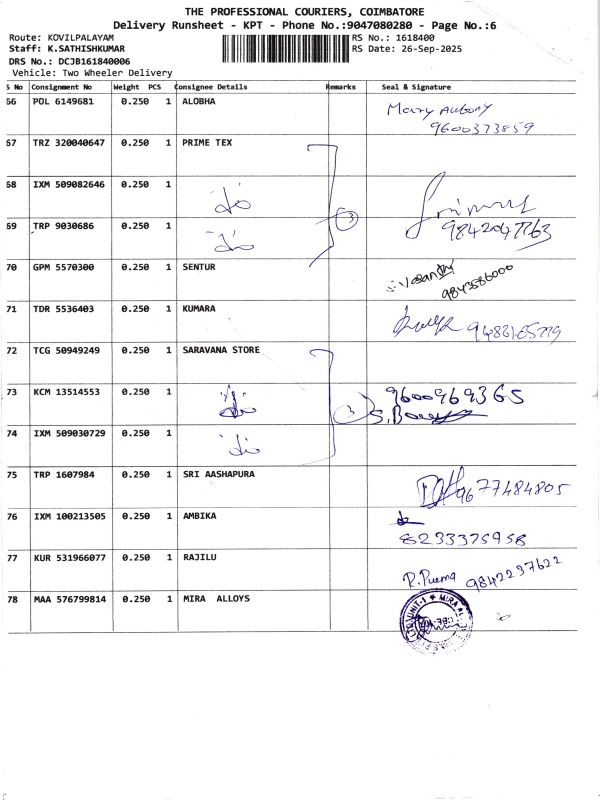 THE PROFESSIONAL COURIERS, COIMBATORE
Delivery Runsheet - KPT - Phone No.:9047080280 - Page No.:6
Route: KOVILPALAYAM RS No.: 1618400
Staff: K.SATHISHKUMAR RS Date: 26-Sep-2025
DRS No.: DCJB161840006
Vehicle: Two Wheeler Delivery
S No Consignment No Weight PCS Consignee Details Remarks Seal & Signature
66 POL 6149681 0.250 1 ALOBHA
9600373859
67 TRZ 320040647 0.250 1 PRIME TEX
68 IXM 509082646 0.250 1
69 TRP 9030686 0.250 1 3
9842047763
70 GPM 5570300 0.250 1 SENTUR
9843586000
71 TDR 5536403 0.250 1 KUMARA
72 TCG 50949249 0.250 1 SARAVANA STORE
73 KCM 13514553 0.250 1 3 9600969365
74 IXM 509030729 0.250 1
75 TRP 1607984 0.250 1 SRI AASHAPURA
9677484805
76 IXM 100213505 0.250 1 AMBIKA
8233375958
77 KUR 531966077 0.250 1 RAJILU
9842237622
78 MAA 576799814 0.250 1 MIRA ALLOYS